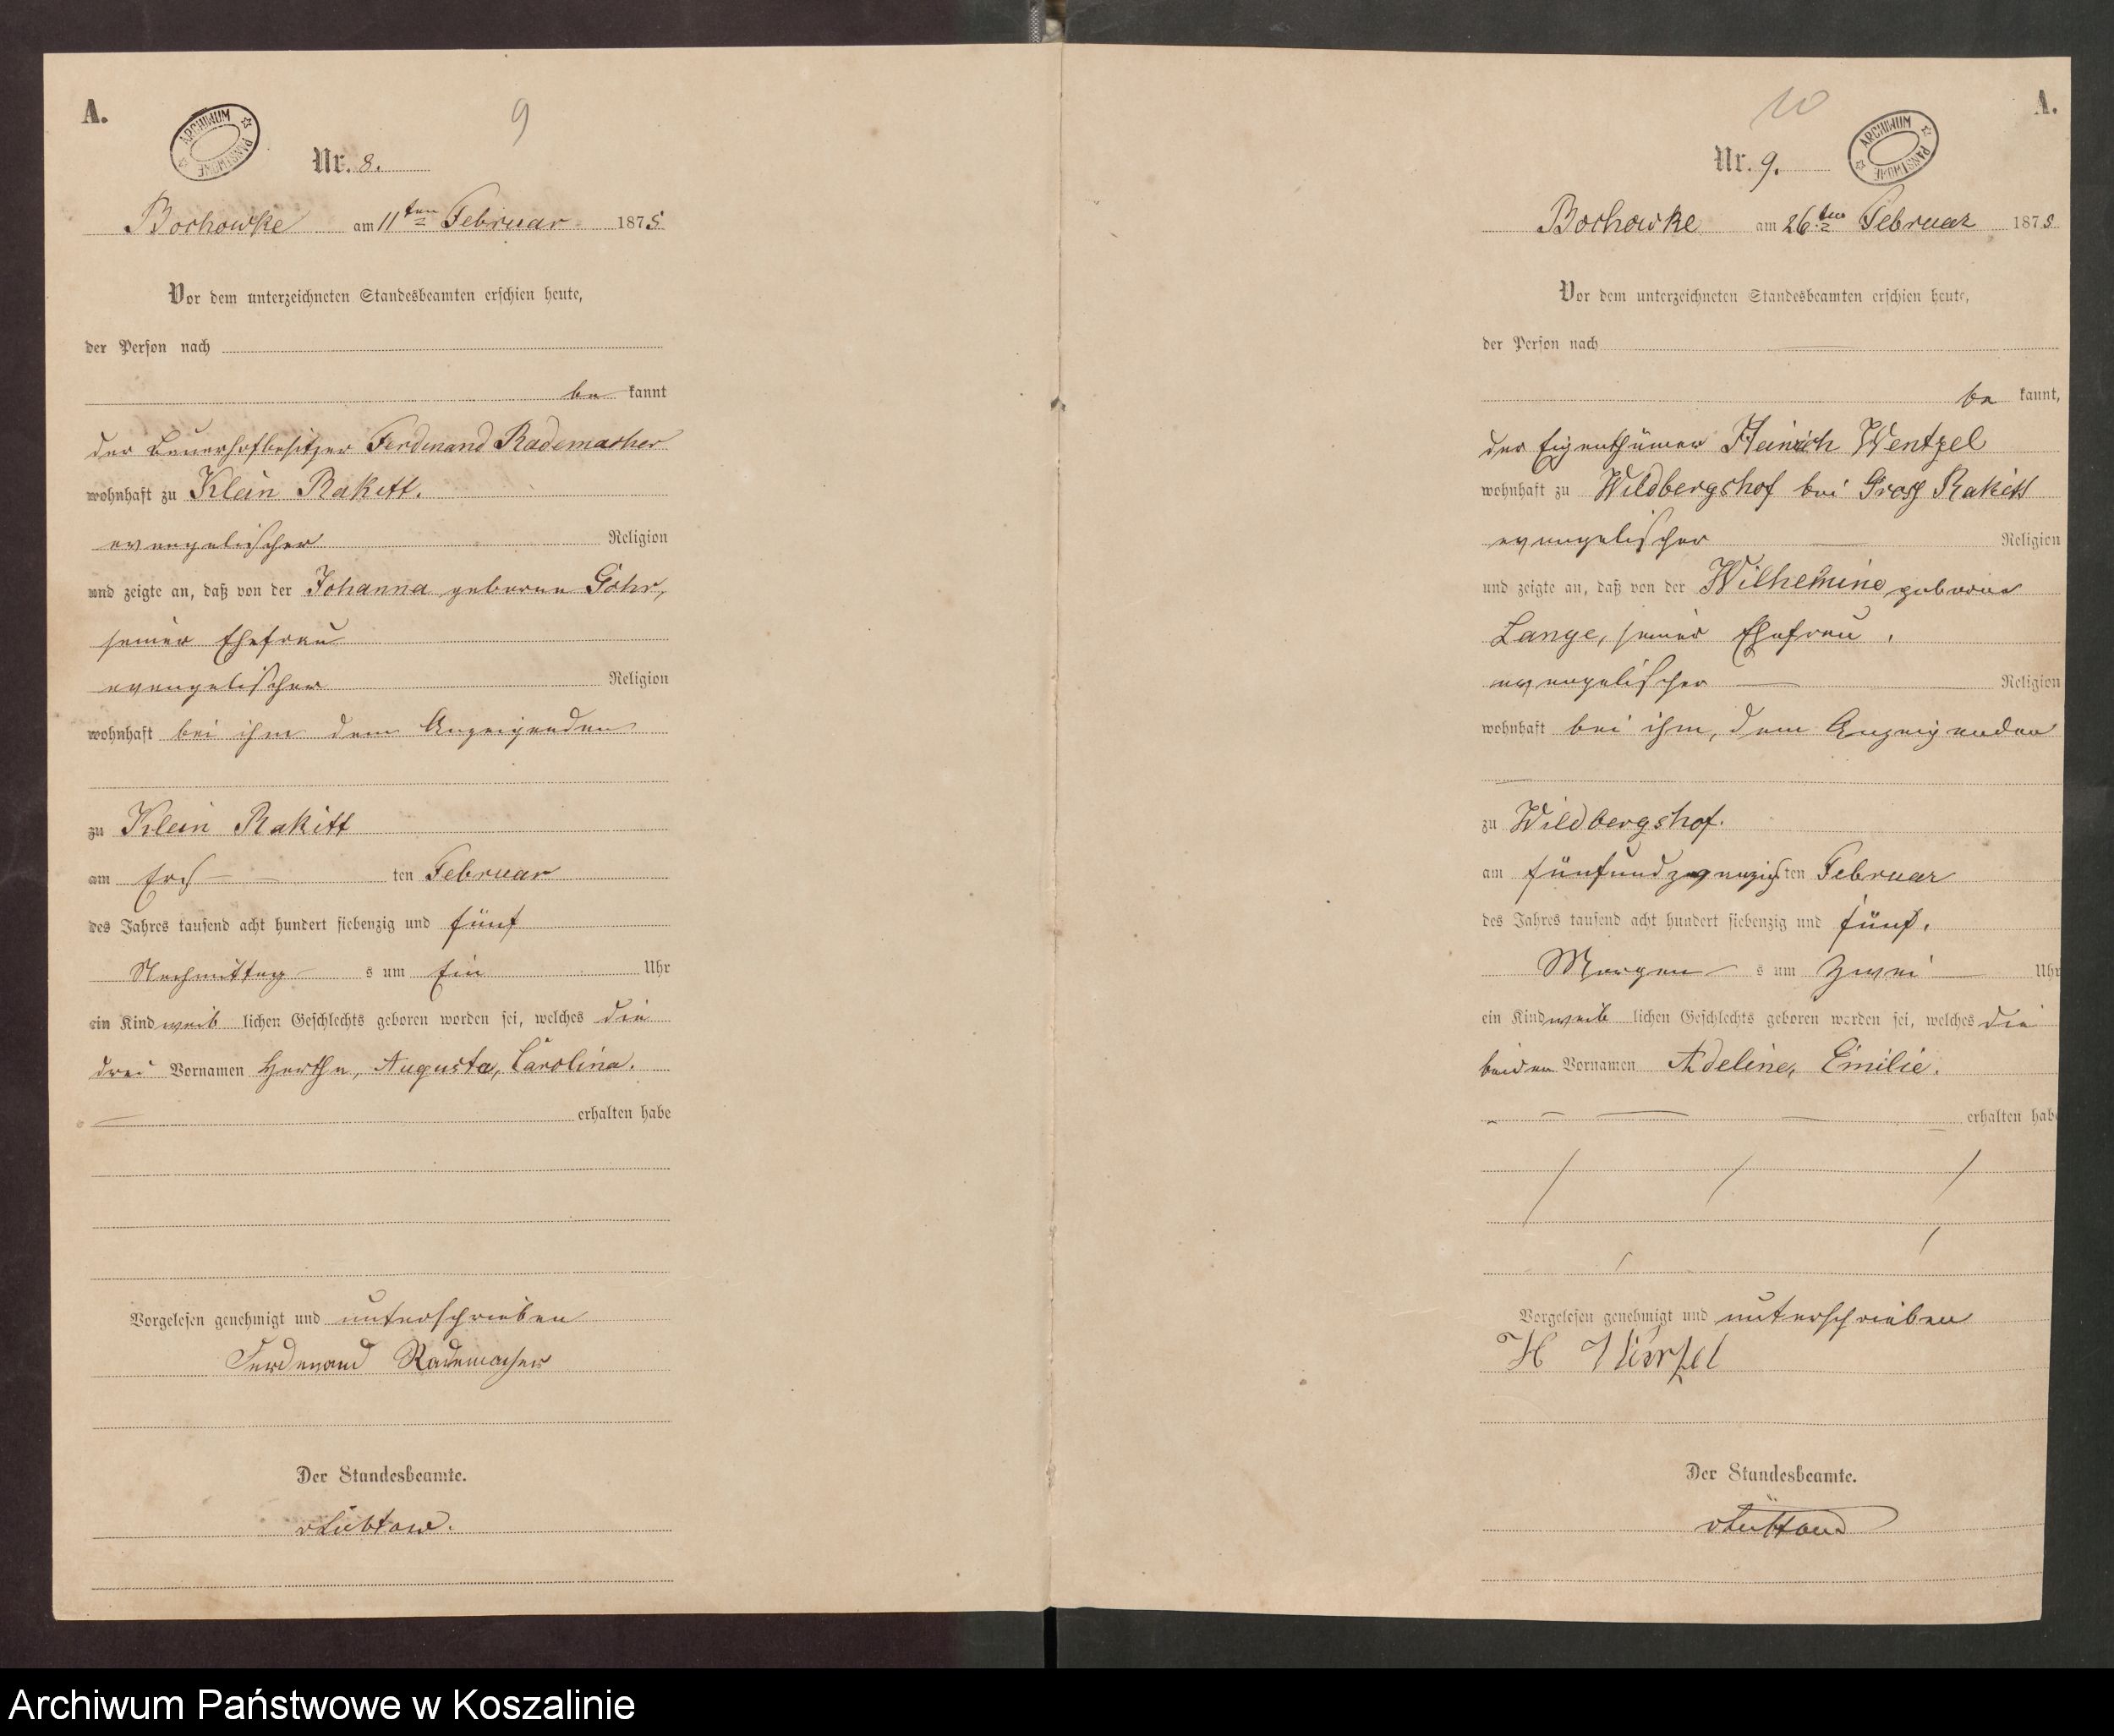 A.
ARCHIWUM PAŃSTWOWE
9
Nr. 8.
Bochowke am 11ten Februar 1875
Vor dem unterzeichneten Standesbeamten erschien heute,
der Person nach
be kannt
der Bauerhofbesitzer Ferdinand Rademacher
wohnhaft zu Klein Rakitt.
evangelischer Religion
und zeigte an, daß von der Johanna geborene Gohr,
seiner Ehefrau
evangelischer Religion
wohnhaft bei ihm dem Anzeigenden
zu Klein Rakitt
am Ers ten Februar
des Jahres tausend acht hundert siebenzig und fünf
Nachmittag s um Ein Uhr
ein Kind weib lichen Geschlechts geboren worden sei, welches die
drei Vornamen Hertha, Augusta, Carolina.
erhalten habe
Vorgelesen genehmigt und unterschrieben
Ferdinand Rademacher
Der Standesbeamte.
vLübtow.
A.
ARCHIWUM PAŃSTWOWE
10
Nr. 9.
Bochowke am 26ten Februar 1875
Vor dem unterzeichneten Standesbeamten erschien heute,
der Person nach
be kannt,
der Eigenthümer Heinrich Wentzel
wohnhaft zu Wildbergshof bei Gross Rakitt
evangelischer Religion
und zeigte an, daß von der Wilhelmine geborne
Lange, seiner Ehefrau,
evangelischer Religion
wohnhaft bei ihm, dem Anzeigenden
zu Wildbergshof.
am fünfundzwanzigsten Februar
des Jahres tausend acht hundert siebenzig und fünf.
Morgen s um Zwei Uhr
ein Kind weib lichen Geschlechts geboren worden sei, welches die
beiden Vornamen Adeline, Emilie.
erhalten habe
Vorgelesen genehmigt und unterschrieben
H
Der Standesbeamte.
vLübtow
Archiwum Państwowe w Koszalinie